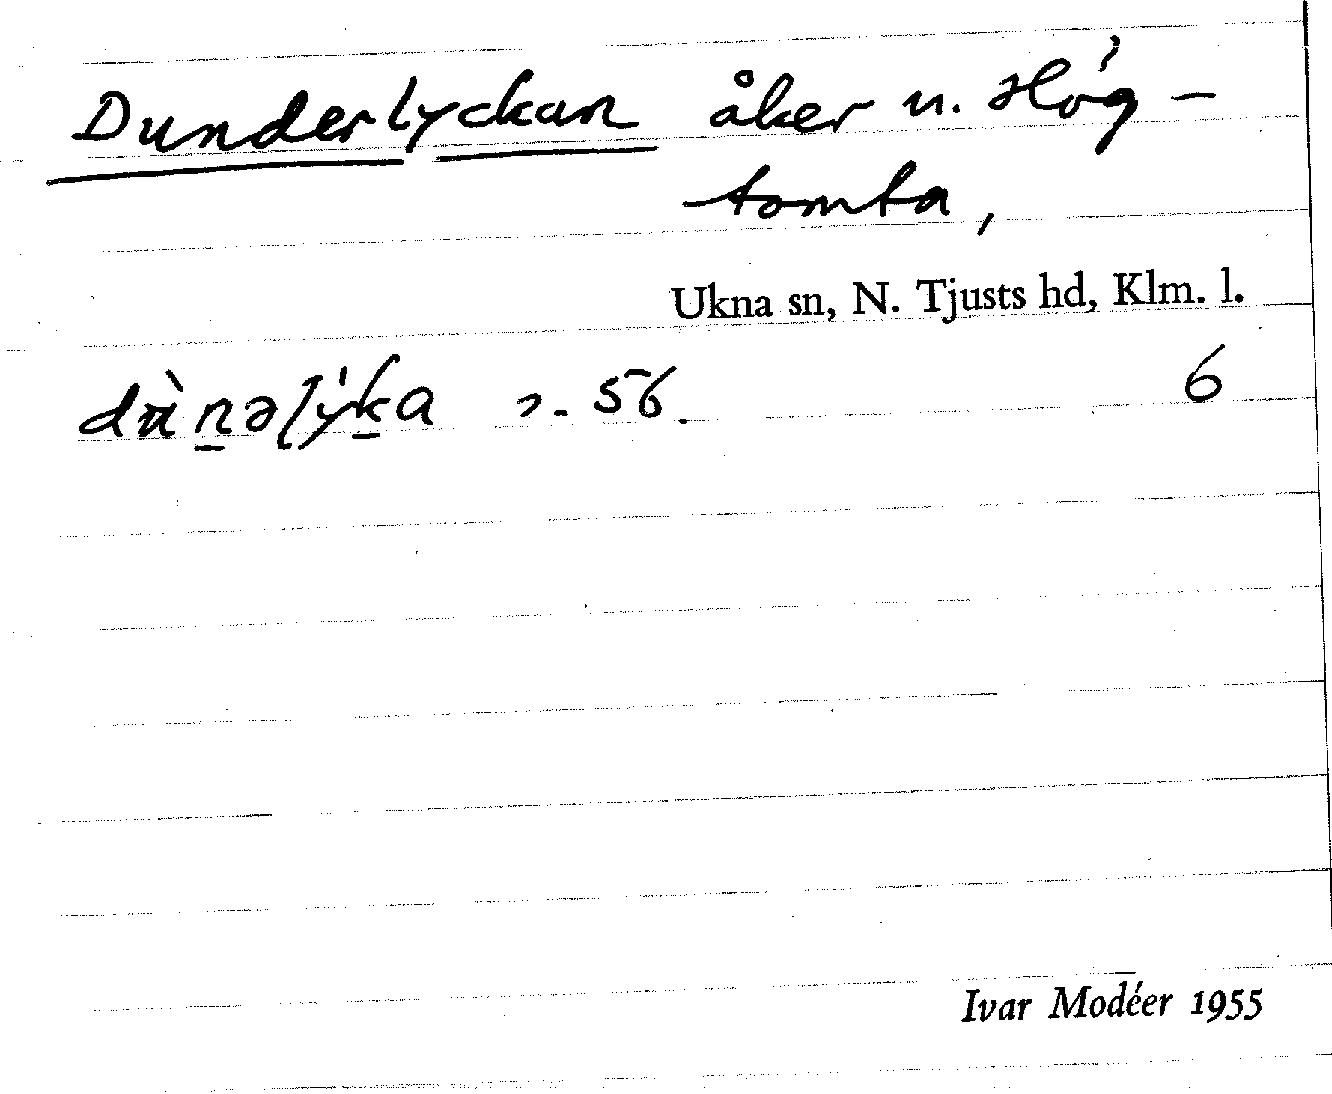 Dunderlyckan åker u. Hög-
tomta,
Ukna sn, N. Tjusts hd, Klm. l.
dùnəlýka s. 56. 6
Ivar Modéer 1955